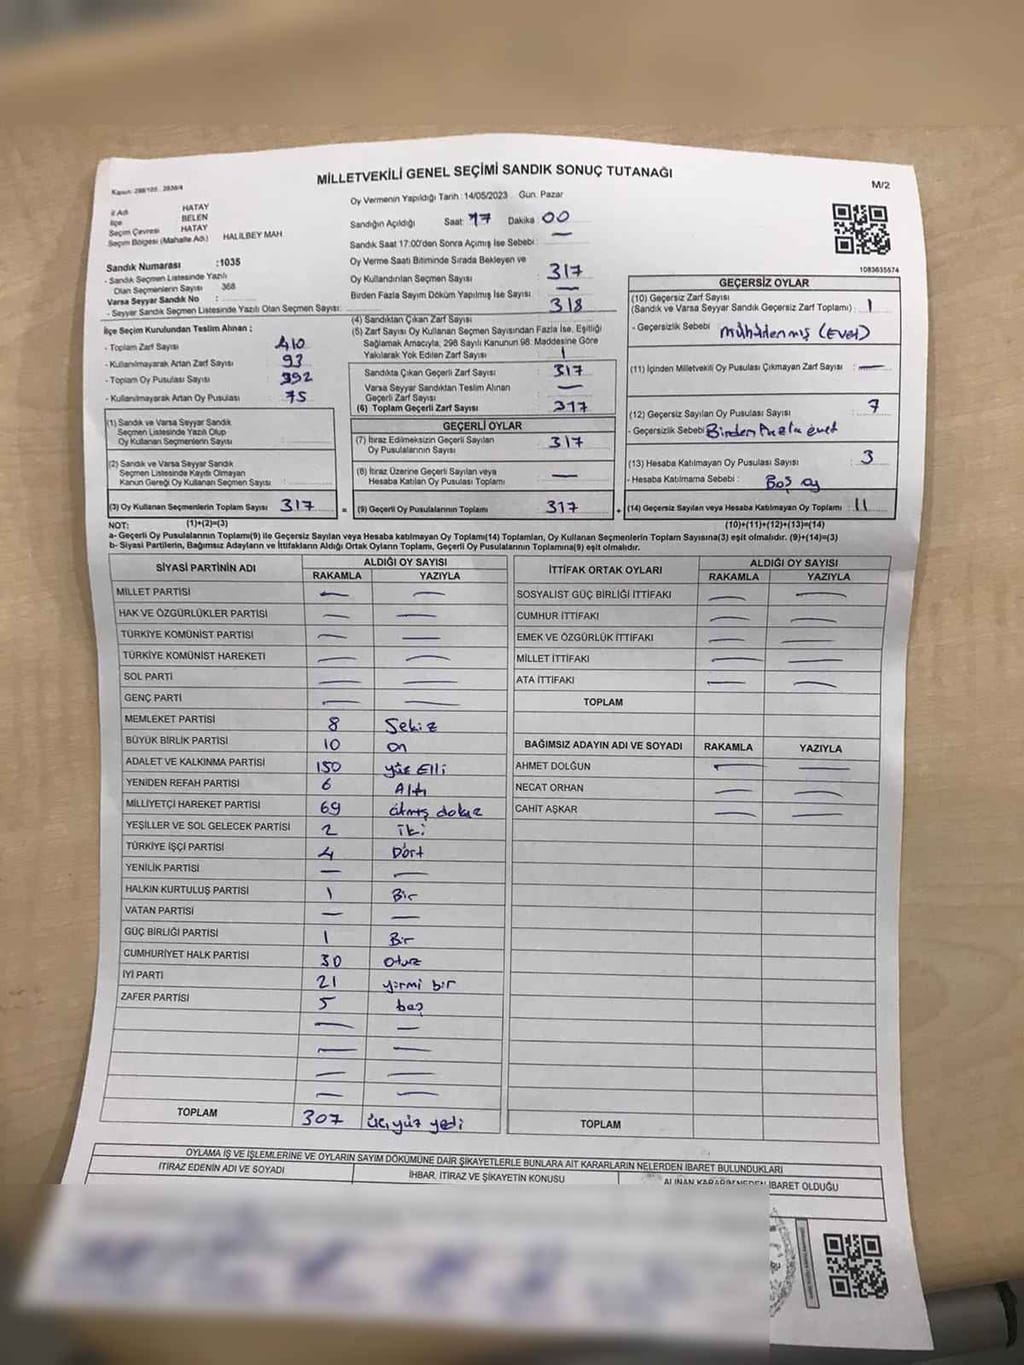 MİLLETVEKİLİ GENEL SEÇİMİ SANDIK SONUÇ TUTANAĞI
M/2
İl Adı HATAY
İlçe BELEN
Seçim Çevresi HATAY
Seçim Bölgesi (Mahalle Adı.) HALİLBEY MAH
Sandık Numarası :1035
- Sandık Seçmen Listesinde Yazılı
Olan Seçmenlerin Sayısı 368
Varsa Seyyar Sandık No :
- Seyyar Sandık Seçmen Listesinde Yazılı Olan Seçmen Sayısı:
İlçe Seçim Kurulundan Teslim Alınan ;
- Toplam Zarf Sayısı 410
- Kullanılmayarak Artan Zarf Sayısı 93
- Toplam Oy Pusulası Sayısı 392
- Kullanılmayarak Artan Oy Pusulası 75
(1) Sandık ve Varsa Seyyar Sandık
Seçmen Listesinde Yazılı Olup
Oy Kullanan Seçmenlerin Sayısı
(2) Sandık ve Varsa Seyyar Sandık
Seçmen Listesinde Kayıtlı Olmayan
Kanun Gereği Oy Kullanan Seçmen Sayısı :
(3) Oy Kullanan Seçmenlerin Toplam Sayısı 317
Oy Vermenin Yapıldığı Tarih :14/05/2023 Gün: Pazar
Sandığın Açıldığı Saat: 17 Dakika: 00
Sandık Saat 17:00'den Sonra Açımış İse Sebebi : —
Oy Verme Saati Bitiminde Sırada Bekleyen ve
Oy Kullandırılan Seçmen Sayısı : 317
Birden Fazla Sayım Döküm Yapılmış İse Sayısı : —
(4) Sandıktan Çıkan Zarf Sayısı 318
(5) Zarf Sayısı Oy Kullanan Seçmen Sayısından Fazla İse, Eşitliği
Sağlamak Amacıyla, 298 Sayılı Kanunun 98. Maddesine Göre
Yakılarak Yok Edilen Zarf Sayısı 1
Sandıkta Çıkan Geçerli Zarf Sayısı 317
Varsa Seyyar Sandıktan Teslim Alınan
Geçerli Zarf Sayısı —
(6) Toplam Geçerli Zarf Sayısı 317
GEÇERLİ OYLAR
(7) İtiraz Edilmeksizin Geçerli Sayılan
Oy Pusulalarının Sayısı : 317
(8) İtiraz Üzerine Geçerli Sayılan veya
Hesaba Katılan Oy Pusulası Toplamı : —
= (9) Geçerli Oy Pusulalarının Toplamı 317
1083635574
GEÇERSİZ OYLAR
(10) Geçersiz Zarf Sayısı
(Sandık ve Varsa Seyyar Sandık Geçersiz Zarf Toplamı) : 1
- Geçersizlik Sebebi
(11) İçinden Milletvekili Oy Pusulası Çıkmayan Zarf Sayısı : —
(12) Geçersiz Sayılan Oy Pusulası Sayısı : 7
- Geçersizlik Sebebi Birden Fazla evet
(13) Hesaba Katılmayan Oy Pusulası Sayısı : 3
- Hesaba Katılmama Sebebi : Boş oy
+ (14) Geçersiz Sayılan veya Hesaba Katılmayan Oy Toplamı 11
NOT: (1)+(2)=(3) (10)+(11)+(12)+(13)=(14)
a- Geçerli Oy Pusulalarının Toplamı(9) ile Geçersiz Sayılan veya Hesaba katılmayan Oy Toplamı(14) Toplamları, Oy Kullanan Seçmenlerin Toplam Sayısına(3) eşit olmalıdır. (9)+(14)=(3)
b- Siyasi Partilerin, Bağımsız Adayların ve İttifakların Aldığı Ortak Oyların Toplamı, Geçerli Oy Pusulalarının Toplamına(9) eşit olmalıdır.
SİYASİ PARTİNİN ADI ALDIĞI OY SAYISI
RAKAMLA YAZIYLA
MİLLET PARTİSİ — —
HAK VE ÖZGÜRLÜKLER PARTİSİ — —
TÜRKİYE KOMÜNİST PARTİSİ — —
TÜRKİYE KOMÜNİST HAREKETİ — —
SOL PARTİ — —
GENÇ PARTİ — —
MEMLEKET PARTİSİ 8 Sekiz
BÜYÜK BİRLİK PARTİSİ 10 on
ADALET VE KALKINMA PARTİSİ 150 yüz Elli
YENİDEN REFAH PARTİSİ 6 Altı
MİLLİYETÇİ HAREKET PARTİSİ 69 atmış dokuz
YEŞİLLER VE SOL GELECEK PARTİSİ 2 iki
TÜRKİYE İŞÇİ PARTİSİ 4 Dört
YENİLİK PARTİSİ — —
HALKIN KURTULUŞ PARTİSİ 1 Bir
VATAN PARTİSİ — —
GÜÇ BİRLİĞİ PARTİSİ 1 Bir
CUMHURİYET HALK PARTİSİ 30 otuz
İYİ PARTİ 21 yirmi bir
ZAFER PARTİSİ 5 beş
— —
— —
— —
— —
TOPLAM 307 üçyüz yedi
İTTİFAK ORTAK OYLARI ALDIĞI OY SAYISI
RAKAMLA YAZIYLA
SOSYALIST GÜÇ BİRLİĞİ İTTİFAKI — —
CUMHUR İTTİFAKI — —
EMEK VE ÖZGÜRLÜK İTTİFAKI — —
MİLLET İTTİFAKI — —
ATA İTTİFAKI — —
TOPLAM
BAĞIMSIZ ADAYIN ADI VE SOYADI RAKAMLA YAZIYLA
AHMET DOLĞUN — —
NECAT ORHAN — —
CAHİT AŞKAR — —
TOPLAM
OYLAMA İŞ VE İŞLEMLERİNE VE OYLARIN SAYIM DÖKÜMÜNE DAİR ŞİKAYETLERLE BUNLARA AİT KARARLARIN NELERDEN İBARET BULUNDUKLARI
İTİRAZ EDENİN ADI VE SOYADI İHBAR, İTİRAZ VE ŞİKAYETİN KONUSU ALINAN KARARIN NEDEN İBARET OLDUĞU